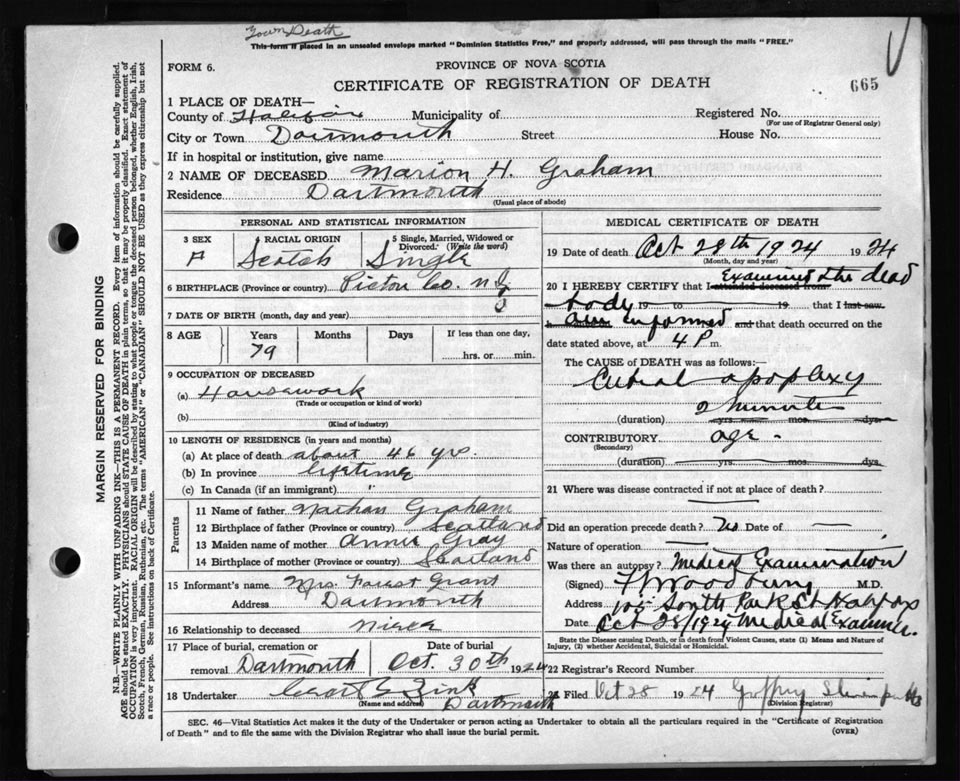 Town Death
This form if placed in an unsealed envelope marked "Dominion Statistics Free," and properly addressed, will pass through the mails "FREE."
FORM 6.
PROVINCE OF NOVA SCOTIA
CERTIFICATE OF REGISTRATION OF DEATH
665
1 PLACE OF DEATH—
County of Halifax Municipality of Registered No.
(For use of Registrar General only)
City or Town Dartmouth Street House No.
If in hospital or institution, give name
2 NAME OF DECEASED Marion H. Graham
Residence Dartmouth
(Usual place of abode)
PERSONAL AND STATISTICAL INFORMATION
3 SEX F
4 RACIAL ORIGIN Scotch
5 Single, Married, Widowed or Divorced: (Write the word) Single
6 BIRTHPLACE (Province or country) Pictou Co. N.S
7 DATE OF BIRTH (month, day and year)
8 AGE Years Months Days If less than one day,
79 hrs. or min.
9 OCCUPATION OF DECEASED
(a) Housework
(Trade or occupation or kind of work)
(b)
(Kind of industry)
10 LENGTH OF RESIDENCE (in years and months)
(a) At place of death about 46 yrs
(b) In province lifetime
(c) In Canada (if an immigrant) "
Parents
11 Name of father Nathan Graham
12 Birthplace of father (Province or country) Scotland
13 Maiden name of mother Annie Gray
14 Birthplace of mother (Province or country) Scotland
15 Informant's name Mrs. Forrest Grant
Address Dartmouth
16 Relationship to deceased niece
17 Place of burial, cremation or removal Dartmouth
Date of burial Oct. 30th 1924
18 Undertaker Zink
(Name and address) Dartmouth
MEDICAL CERTIFICATE OF DEATH
19 Date of death Oct 28th 1924 1924
(Month, day and year)
20 I HEREBY CERTIFY that I attended deceased from Examined the dead
body 19 to 19 that I last saw
h am informed and that death occurred on the
date stated above, at 4 P m.
The CAUSE of DEATH was as follows:
Cerbral apoplexy
2 minutes
(duration) yrs. mos. dys.
CONTRIBUTORY age.
(Secondary)
(duration) yrs. mos. dys.
21 Where was disease contracted if not at place of death?
Did an operation precede death? No Date of
Nature of operation
Was there an autopsy? Medical Examination
(Signed) F V Woodbury M.D.
Address 105 South Park St Halifax
Date Oct 28/1924 Medical Examiner.
State the Disease causing Death, or in death from Violent Causes, state (1) Means and Nature of Injury, (2) whether Accidental, Suicidal or Homicidal.
22 Record Number
Filed Oct 28 1924
(Division Registrar)
SEC. 46—Vital Statistics Act makes it the duty of the Undertaker or person acting as Undertaker to obtain all the particulars required in the "Certificate of Registration
of Death" and to file the same with the Division Registrar who shall issue the burial permit.
(OVER)
MARGIN RESERVED FOR BINDING
N.B.—WRITE PLAINLY WITH UNFADING INK—THIS IS A PERMANENT RECORD. Every item of information should be carefully supplied.
AGE should be stated EXACTLY. PHYSICIANS should STATE CAUSE OF DEATH in plain terms, so that it may be properly classified. Exact statement of
OCCUPATION is very important. RACIAL ORIGIN will be described by stating to what people or tongue the deceased person belonged, whether English, Irish,
Scotch, French, German, Russian, Ruthenian, etc. The terms "AMERICAN" or "CANADIAN" SHOULD NOT BE USED as they express citizenship but not
a race or people. See instructions on back of Certificate.